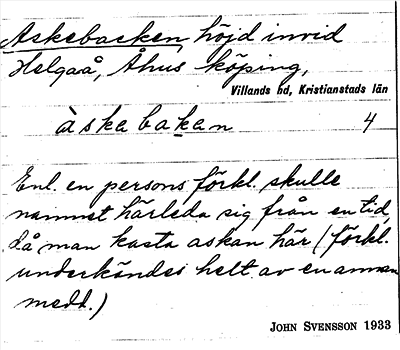 Askebacken, höjd invid
Helgaå, Åhus köping,
Villands hd, Kristianstads län
àskabakan 4
Enl. en persons förkl. skulle
namnet härleda sig från en tid,
då man kasta askan här (förkl.
underkändes helt av en annan
medd.)
JOHN SVENSSON 1933